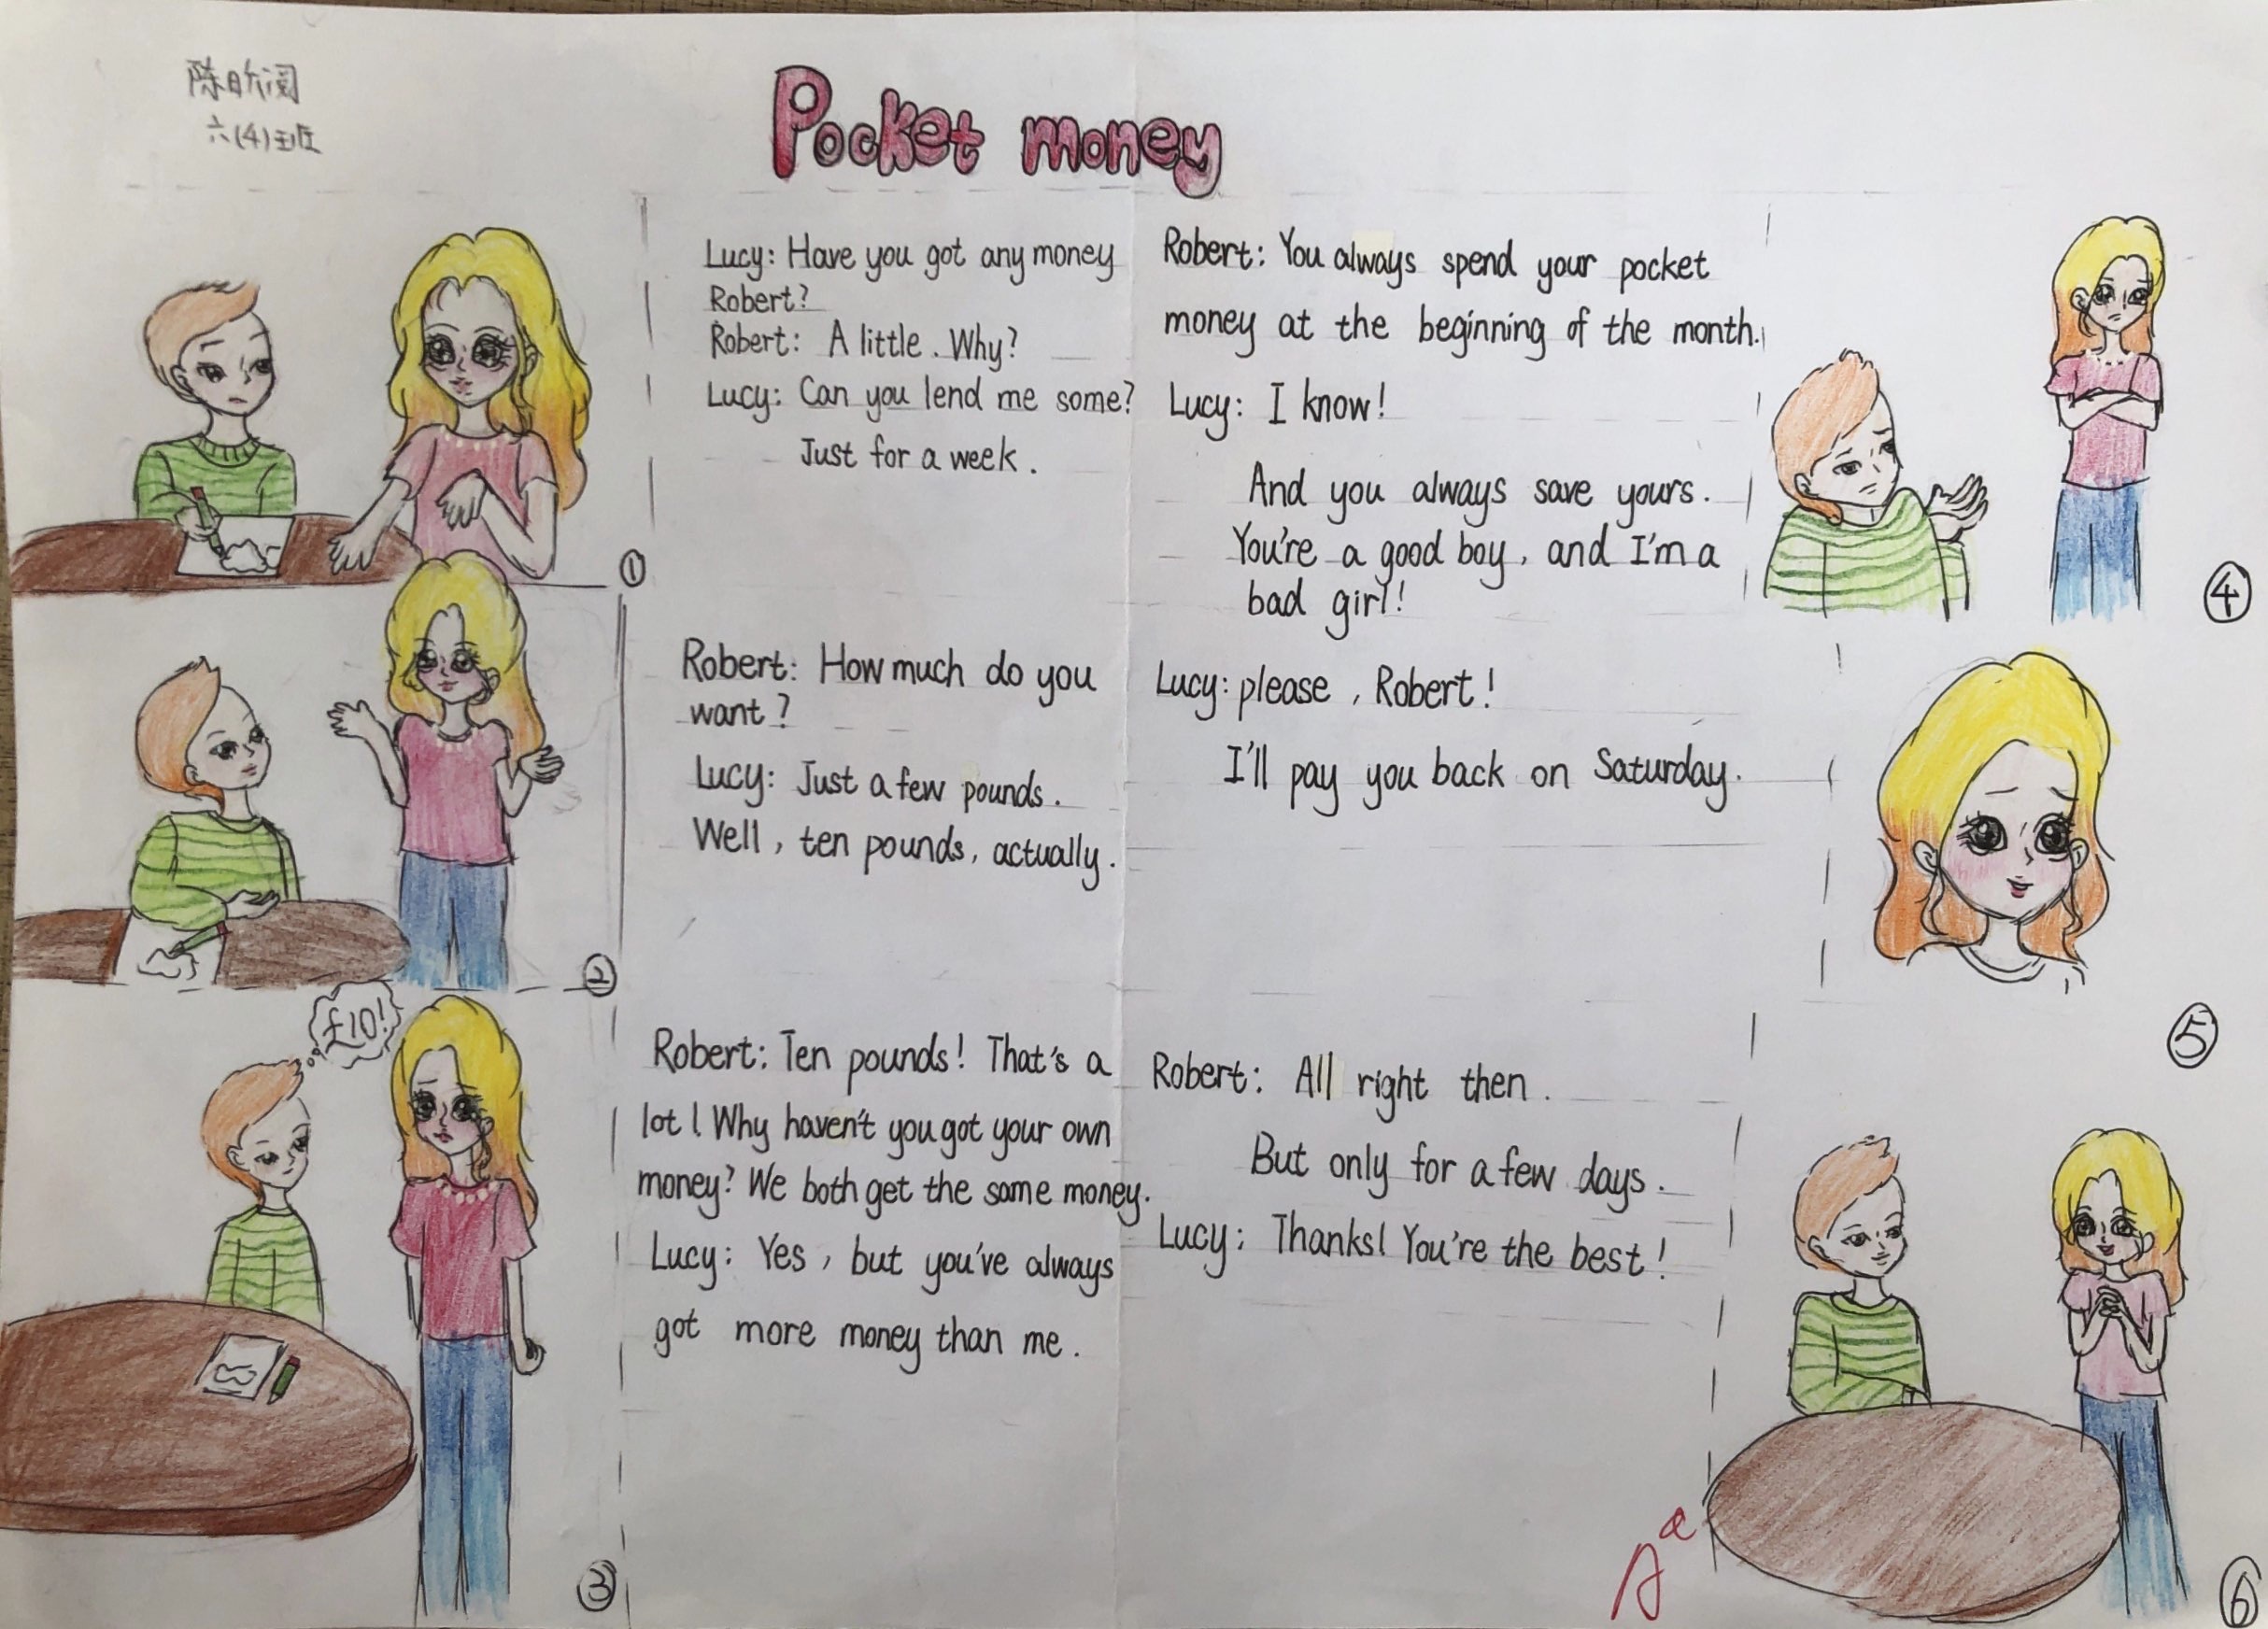 陈昕阅
六(4)班
Pocket money
Lucy: Have you got any money
Robert?
Robert: A little. Why?
Lucy: Can you lend me some?
Just for a week.
①
Robert: How much do you
want?
Lucy: Just a few pounds.
Well, ten pounds, actually.
②
£10!
Robert: Ten pounds! That's a
lot! Why haven't you got your own
money? We both get the same money.
Lucy: Yes, but you've always
got more money than me.
③
Robert: You always spend your pocket
money at the beginning of the month.
Lucy: I know!
And you always save yours.
You're a good boy, and I'm a
bad girl!
④
Lucy: please, Robert!
I'll pay you back on Saturday.
⑤
Robert: All right then.
But only for a few days.
Lucy: Thanks! You're the best!
⑥